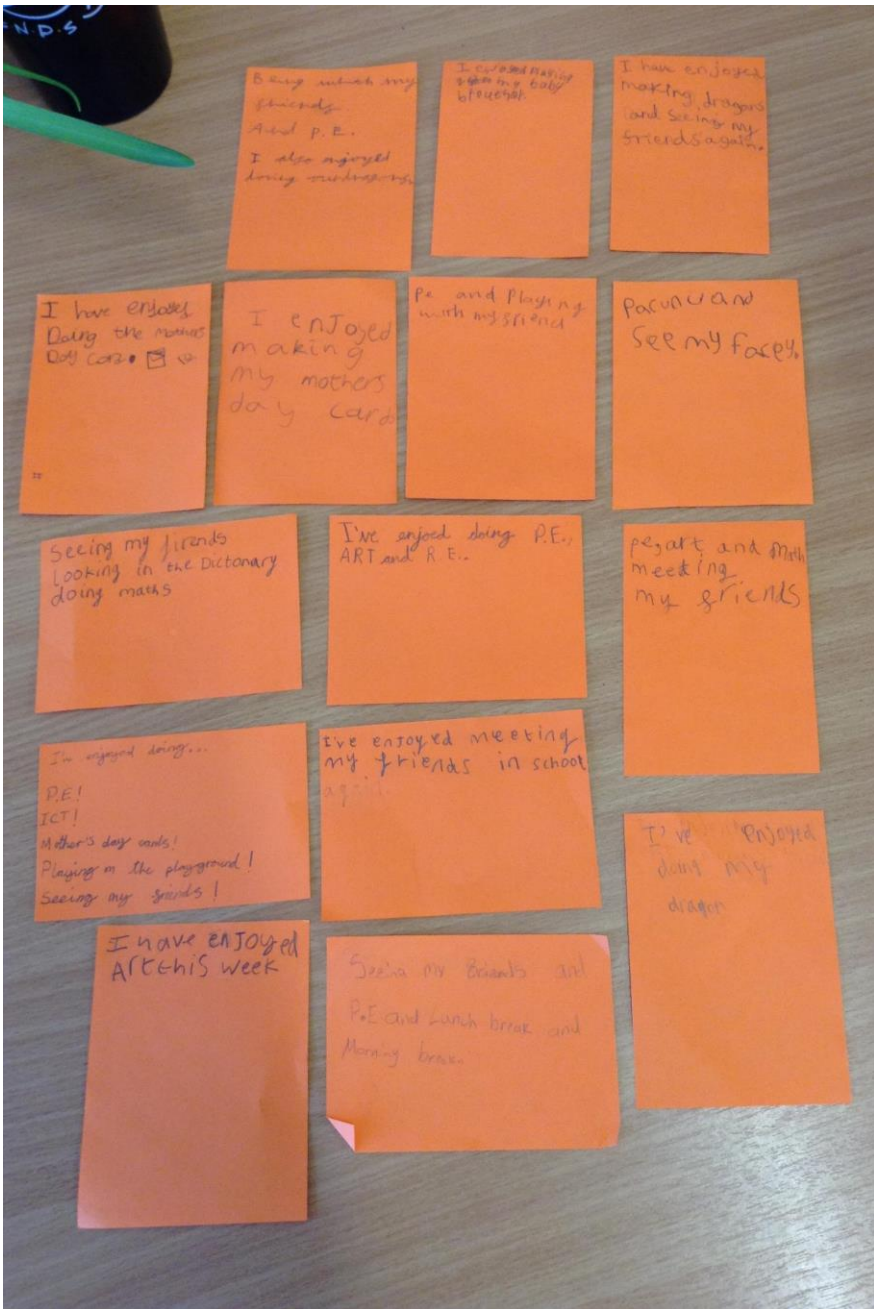 N.D.S
Being which my
friends
And P.E.
I also enjoyed
doing
I
my baby
I have enjoyed
making dragons
and seeing my
friends again.
I have enjoyed
Doing the mothers
Day card.
I enJoyed
making
my mothers
day card
Pe and Playing
with my friend
and
See my
Seeing my firends
Looking in the Dictonary
doing maths
I've enjoed doing P.E.,
ART and R.E..
pe, art and Math
meeting
my friends
I've enjoyed doing...
P.E!
ICT!
Mother's day cards!
Playing in the playground!
Seeing my friends!
I've enjoyed meeting
my friends in school
again.
I've enjoyed
doing my
dragon
I have enJoyed
Art this week
my friends and
P.E and Lunch break and
Morning break.